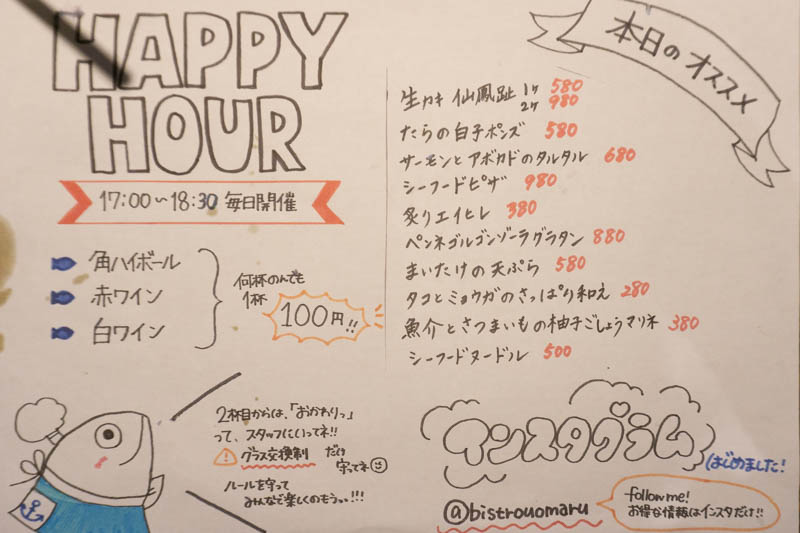 HAPPY
HOUR
17:00～18:30 毎日開催
角ハイボール
赤ワイン
白ワイン
何杯のんでも
1杯
100円!!
2杯目からは、「おかわりっ」
って、スタッフにいってネ!!
グラス交換制 だけ
守ってネ
ルールを守って
みんなで楽しくのもうっ…!!!
本日のオススメ
生カキ 仙鳳趾 1ヶ 580
2ヶ 980
たらの白子ポンズ 580
サーモンとアボカドのタルタル 680
シーフードピザ 980
炙りエイヒレ 380
ペンネゴルゴンゾーラグラタン 880
まいたけの天ぷら 580
タコとミョウガのさっぱり和え 280
魚介とさつまいもの柚子ごしょうマリネ 380
シーフードヌードル 500
インスタグラム
はじめました!
@bistrouomaru
follow me!
お得な情報はインスタだけ!!